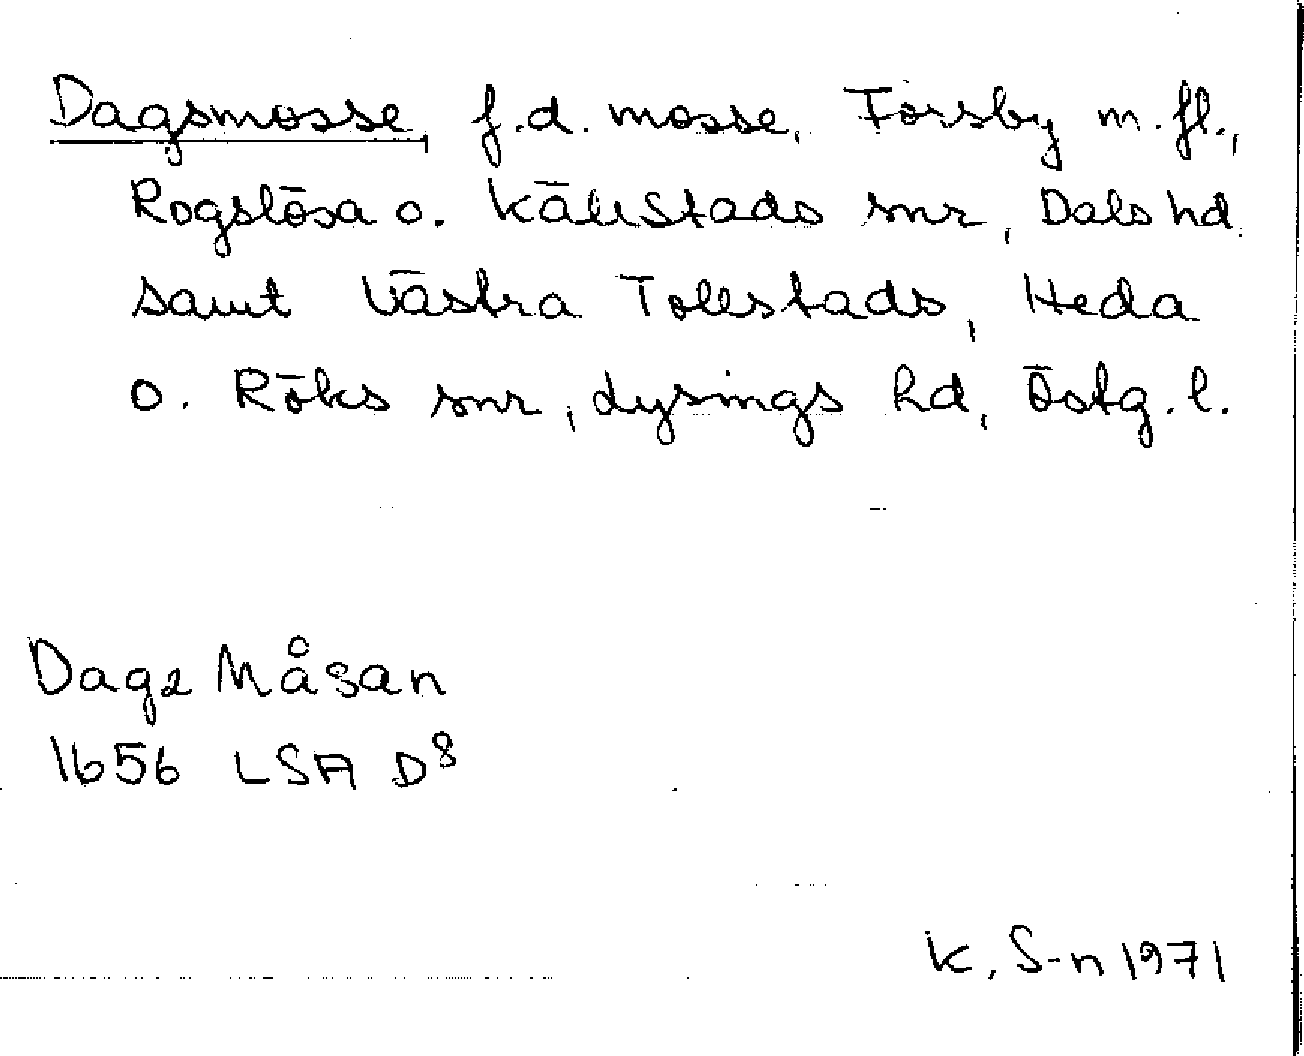 Dagsmosse, f.d. mosse, Forsby m.fl.,
Rogslösa o. Källstads snr, Dals hd
samt Västra Tollstads, Heda
o. Röks snr, Lysings hd, Östg. l.
Dagz Måsan
1656 LSA D8
K. S-n 1971